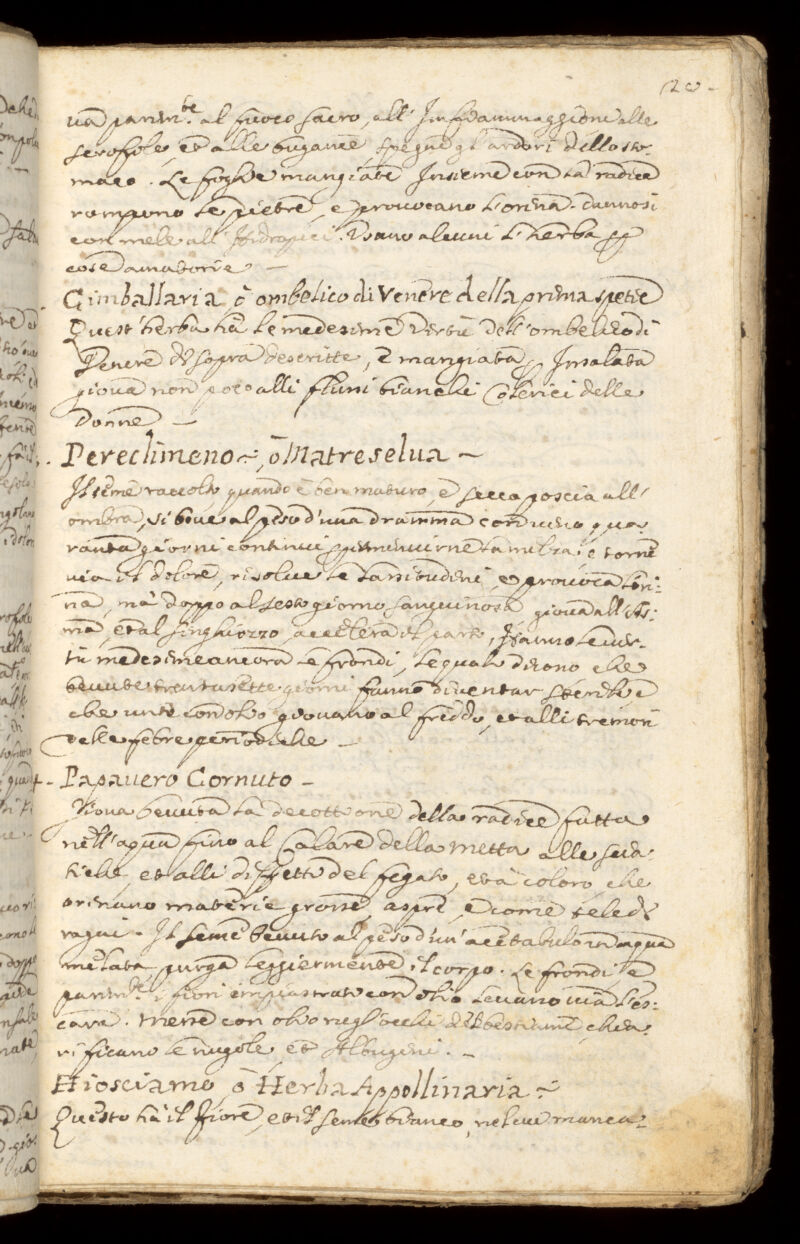 120.
ua parim.te al fuoco sacro, all' Infiammaggioni alle
scrofole, et alle buganze, spegne gl'ardori dello sto-
maco. Le foglie mangiate Insieme con la radice
rompono le pietre, e prouocano l'orina. dannosi
con mele all' Hidropici. Usano alcuni l'herba
cose amatorie —
Cimballaria ò ombelico di Venere della prima spetie
Quest'herba hà le medesime Virtù dell'ombelico di
Venere di sopra descritte, è mangiata Insalata
gioua non poco alli flussi bianchi Colerici delle
Donne —
Pereclimeno ~, ò Matreselua ~
Il seme raccolto quando è ben maturo è secco poscia all'
ombra, si beue al peso d'una dramma con uino qua-
ranta giorni continui la milza, e torre
uia il dolore, risolue le lassitudini, e prouoca l'ori-
na, mà doppo al sesto giorno sanguinosa gioua all'As-
ma, et al singhiozzo, accellera il parto, Hanno le uir-
tù medesime ancora le frondi, le quali dicono che
beuute trentasette giorni fanno diuentar sterile è
che unte con olio giouano al freddo, et alli tremori
delle febre periodiche —
Papauero Cornuto —
Gioua beuuta la decottione della radice fatta
nell'aqua fino al Calare della metta alle scia-
tiche, et alli diffetti del fegato, et à coloro, che
orinano materie grosse, aspre, è come tele di
ragni. Il seme beuuto al peso d'un'acetabulo in aqua
melata purga leggiermente il corpo. Le frondi, è
parim.te i fiori impiastrati con olio leuano uia l'es-
cara. messe con olio negl'occhi delle bestiami chia-
rificano le nugole, et Albugini. —
Hiosciamo, ò Herba Appollinaria ~
Questo hà il fiore, et il seme bianco, nel cui manca-